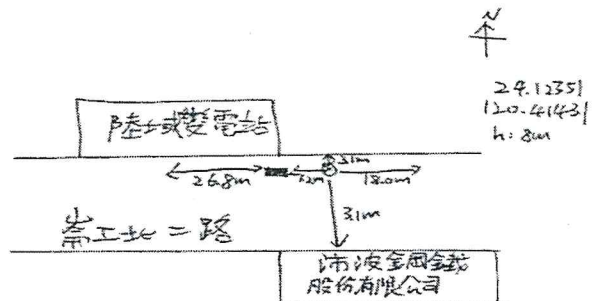 N
24.12351
120.41431
h: 8m
陸域變電站
3.1m
26.8m
1.2m
18.0m
31m
崙工北二路
沛波鋼鐵
股份有限公司